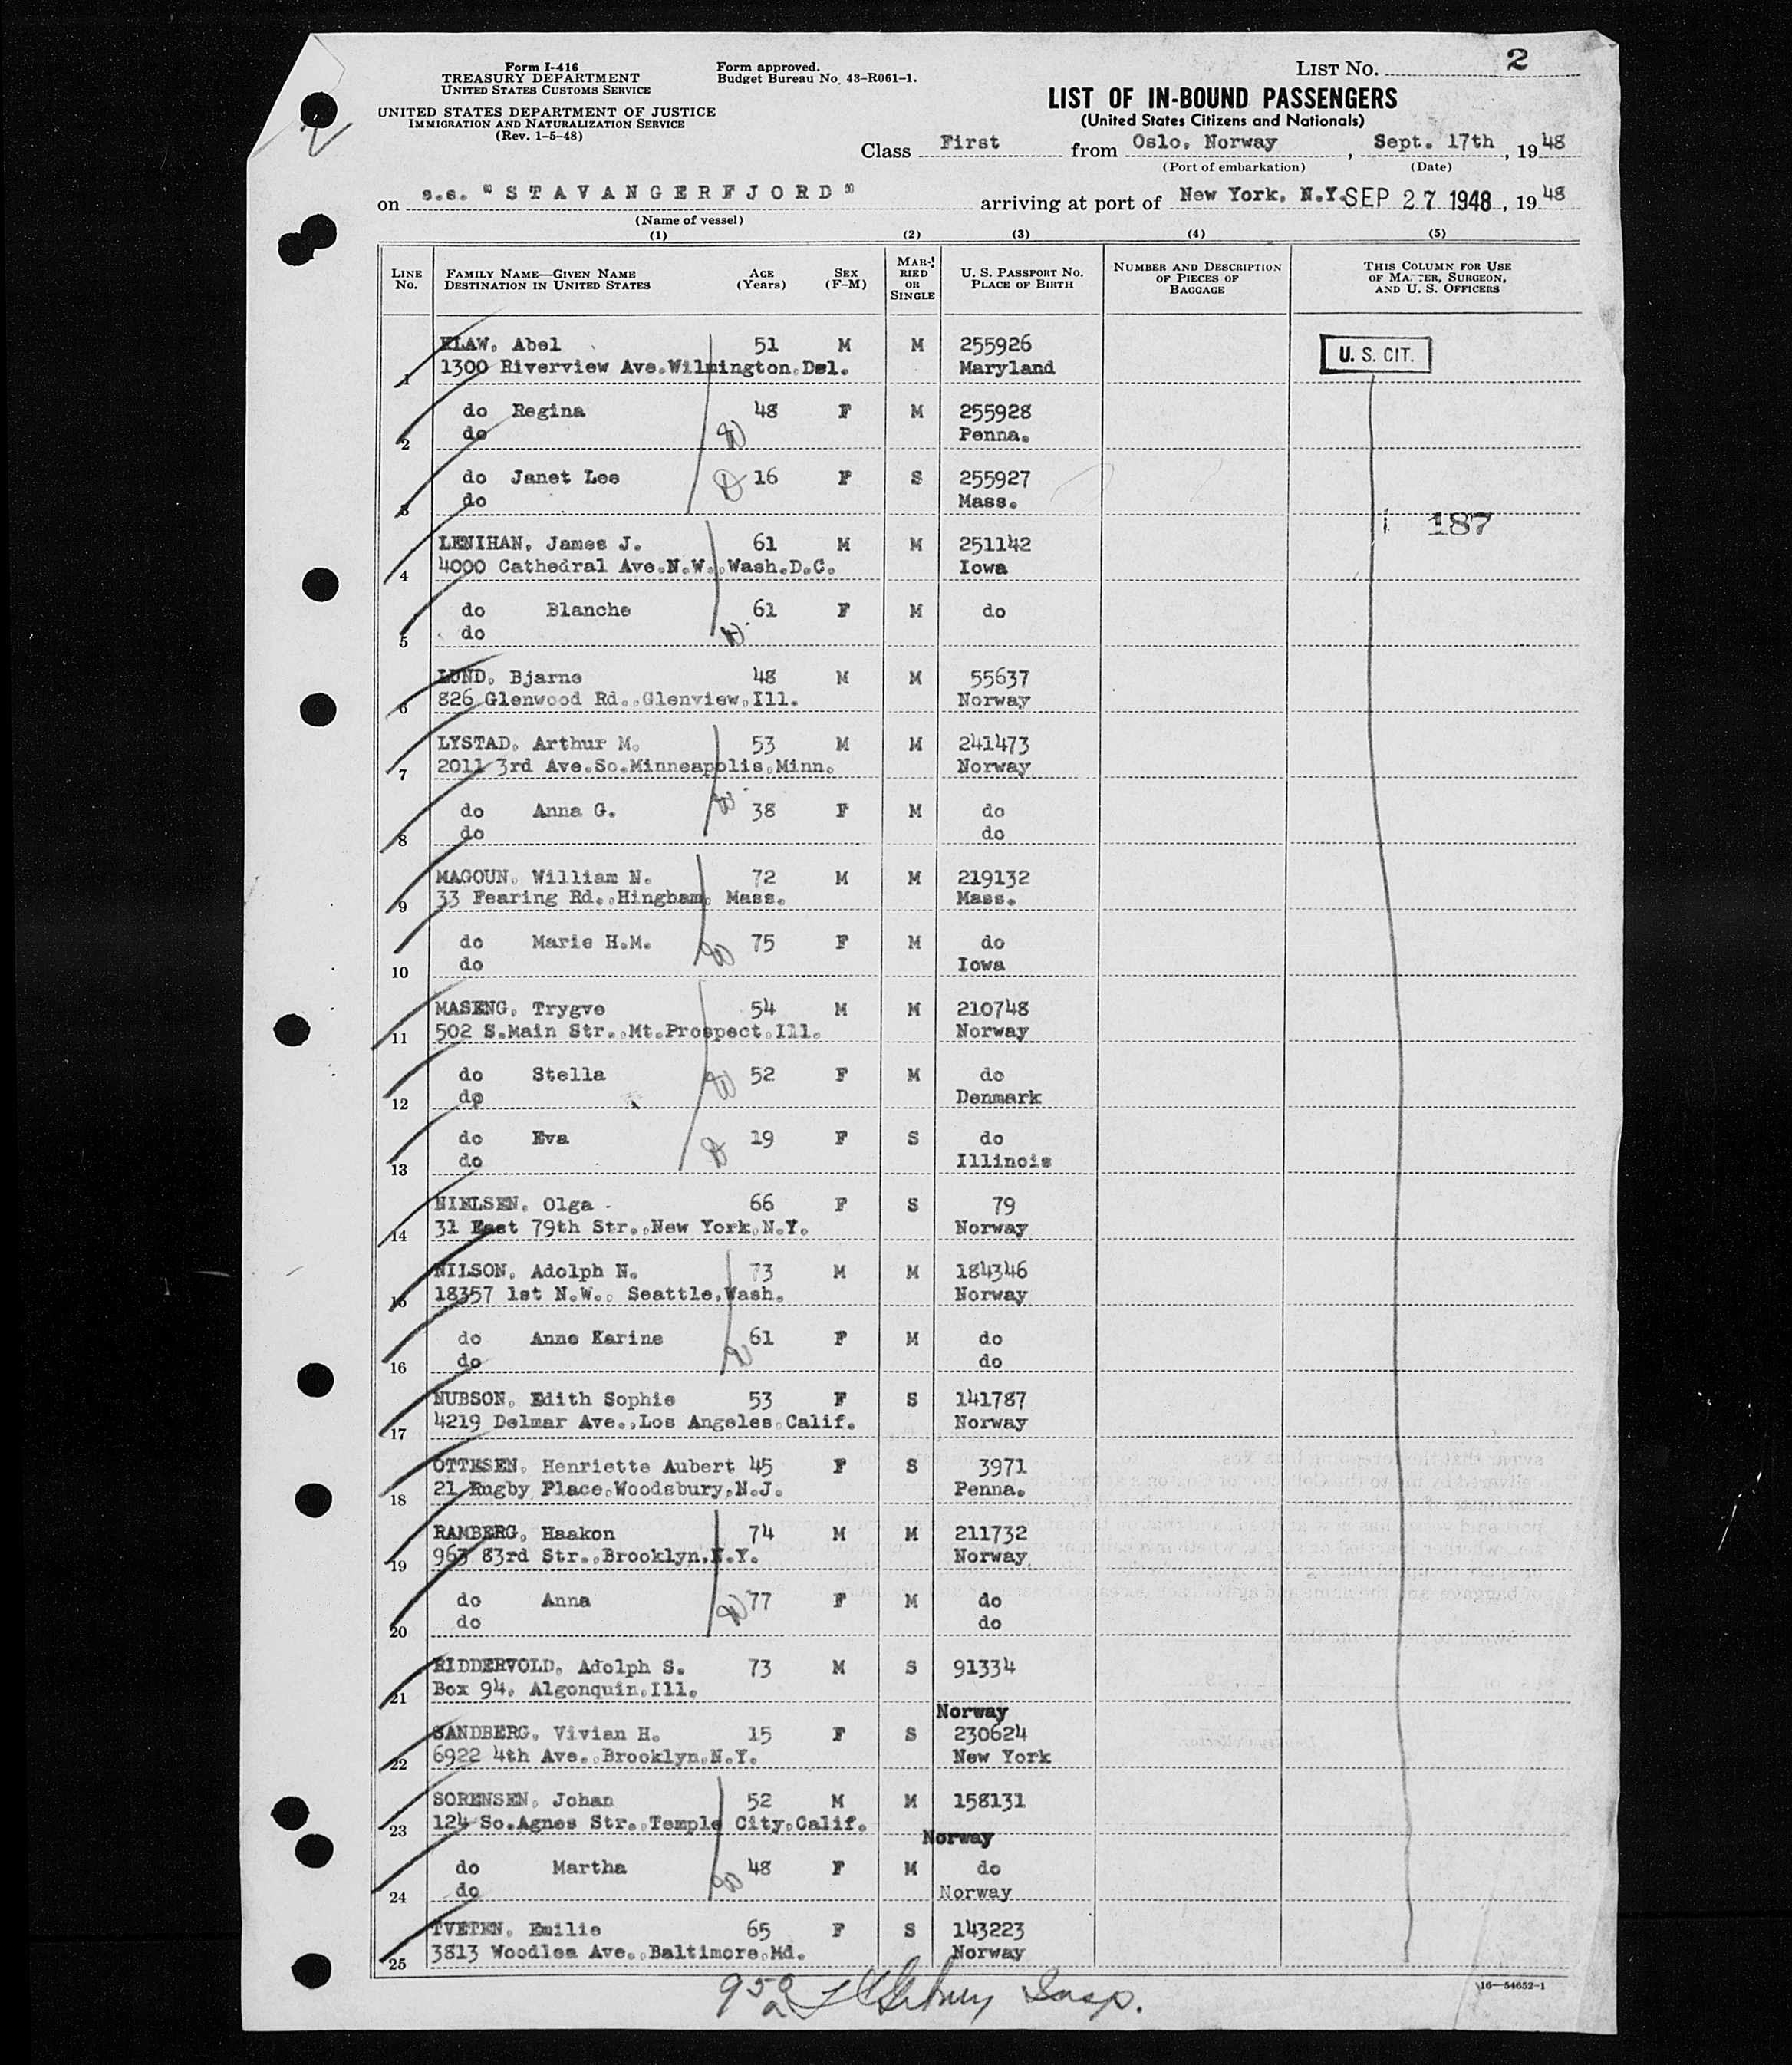 Form I-416
TREASURY DEPARTMENT
UNITED STATES CUSTOMS SERVICE
UNITED STATES DEPARTMENT OF JUSTICE
IMMIGRATION AND NATURALIZATION SERVICE
(Rev. 1-5-48)
Form approved.
Budget Bureau No. 43-R061-1.
LIST NO. 2
LIST OF IN-BOUND PASSENGERS
(United States Citizens and Nationals)
Class First from Oslo, Norway, Sept. 17th, 1948
(Port of embarkation) (Date)
on s.s. "STAVANGERFJORD" arriving at port of New York, N.Y. SEP 27 1948, 1948
(Name of vessel)
(1) (2) (3) (4) (5)
LINE NO. FAMILY NAME—GIVEN NAME DESTINATION IN UNITED STATES AGE (Years) SEX (F-M) MARRIED OR SINGLE U. S. PASSPORT NO. PLACE OF BIRTH NUMBER AND DESCRIPTION OF PIECES OF BAGGAGE THIS COLUMN FOR USE OF MASTER, SURGEON, AND U. S. OFFICERS
KLAW, Abel 51 M M 255926 U. S. CIT.
1 1300 Riverview Ave.Wilmington.Del. Maryland
do Regina 48 F M 255928
2 do Penna.
do Janet Lee 16 F S 255927
3 do Mass.
187
LENIHAN, James J. 61 M M 251142
4 4000 Cathedral Ave.N.W., Wash.D.C. Iowa
do Blanche 61 F M do
5 do
LUND, Bjarne 48 M M 55637
6 826 Glenwood Rd.,Glenview,Ill. Norway
LYSTAD, Arthur M. 53 M M 241473
7 2011 3rd Ave.So.Minneapolis,Minn. Norway
do Anna G. 38 F M do
8 do do
MAGOUN, William N. 72 M M 219132
9 33 Fearing Rd.,Hingham, Mass. Mass.
do Marie H.M. 75 F M do
10 do Iowa
MASENG, Trygve 54 M M 210748
11 502 S.Main Str.,Mt.Prospect,Ill. Norway
do Stella 52 F M do
12 do Denmark
do Eva 19 F S do
13 do Illinois
NIELSEN, Olga 66 F S 79
14 31 East 79th Str.,New York,N.Y. Norway
NILSON, Adolph N. 73 M M 184346
15 18357 1st N.W., Seattle,Wash. Norway
do Anne Karine 61 F M do
16 do do
NUBSON, Edith Sophie 53 F S 141787
17 4219 Delmar Ave.,Los Angeles,Calif. Norway
OTTESEN, Henriette Aubert 45 F S 3971
18 21 Rugby Place,Woodsbury,N.J. Penna.
RAMBERG, Haakon 74 M M 211732
19 963 83rd Str.,Brooklyn,N.Y. Norway
do Anna 77 F M do
20 do do
RIDDERVOLD, Adolph S. 73 M S 91334
21 Box 94, Algonquin,Ill.
Norway
SANDBERG, Vivian H. 15 F S 230624
22 6922 4th Ave.,Brooklyn,N.Y. New York
SORENSEN, Johan 52 M M 158131
23 124 So.Agnes Str.,Temple City,Calif.
Norway
do Martha 48 F M do
24 do Norway
TVETEN, Emilie 65 F S 143223
25 3813 Woodlea Ave.,Baltimore,Md. Norway
Insp.
16—54652-1